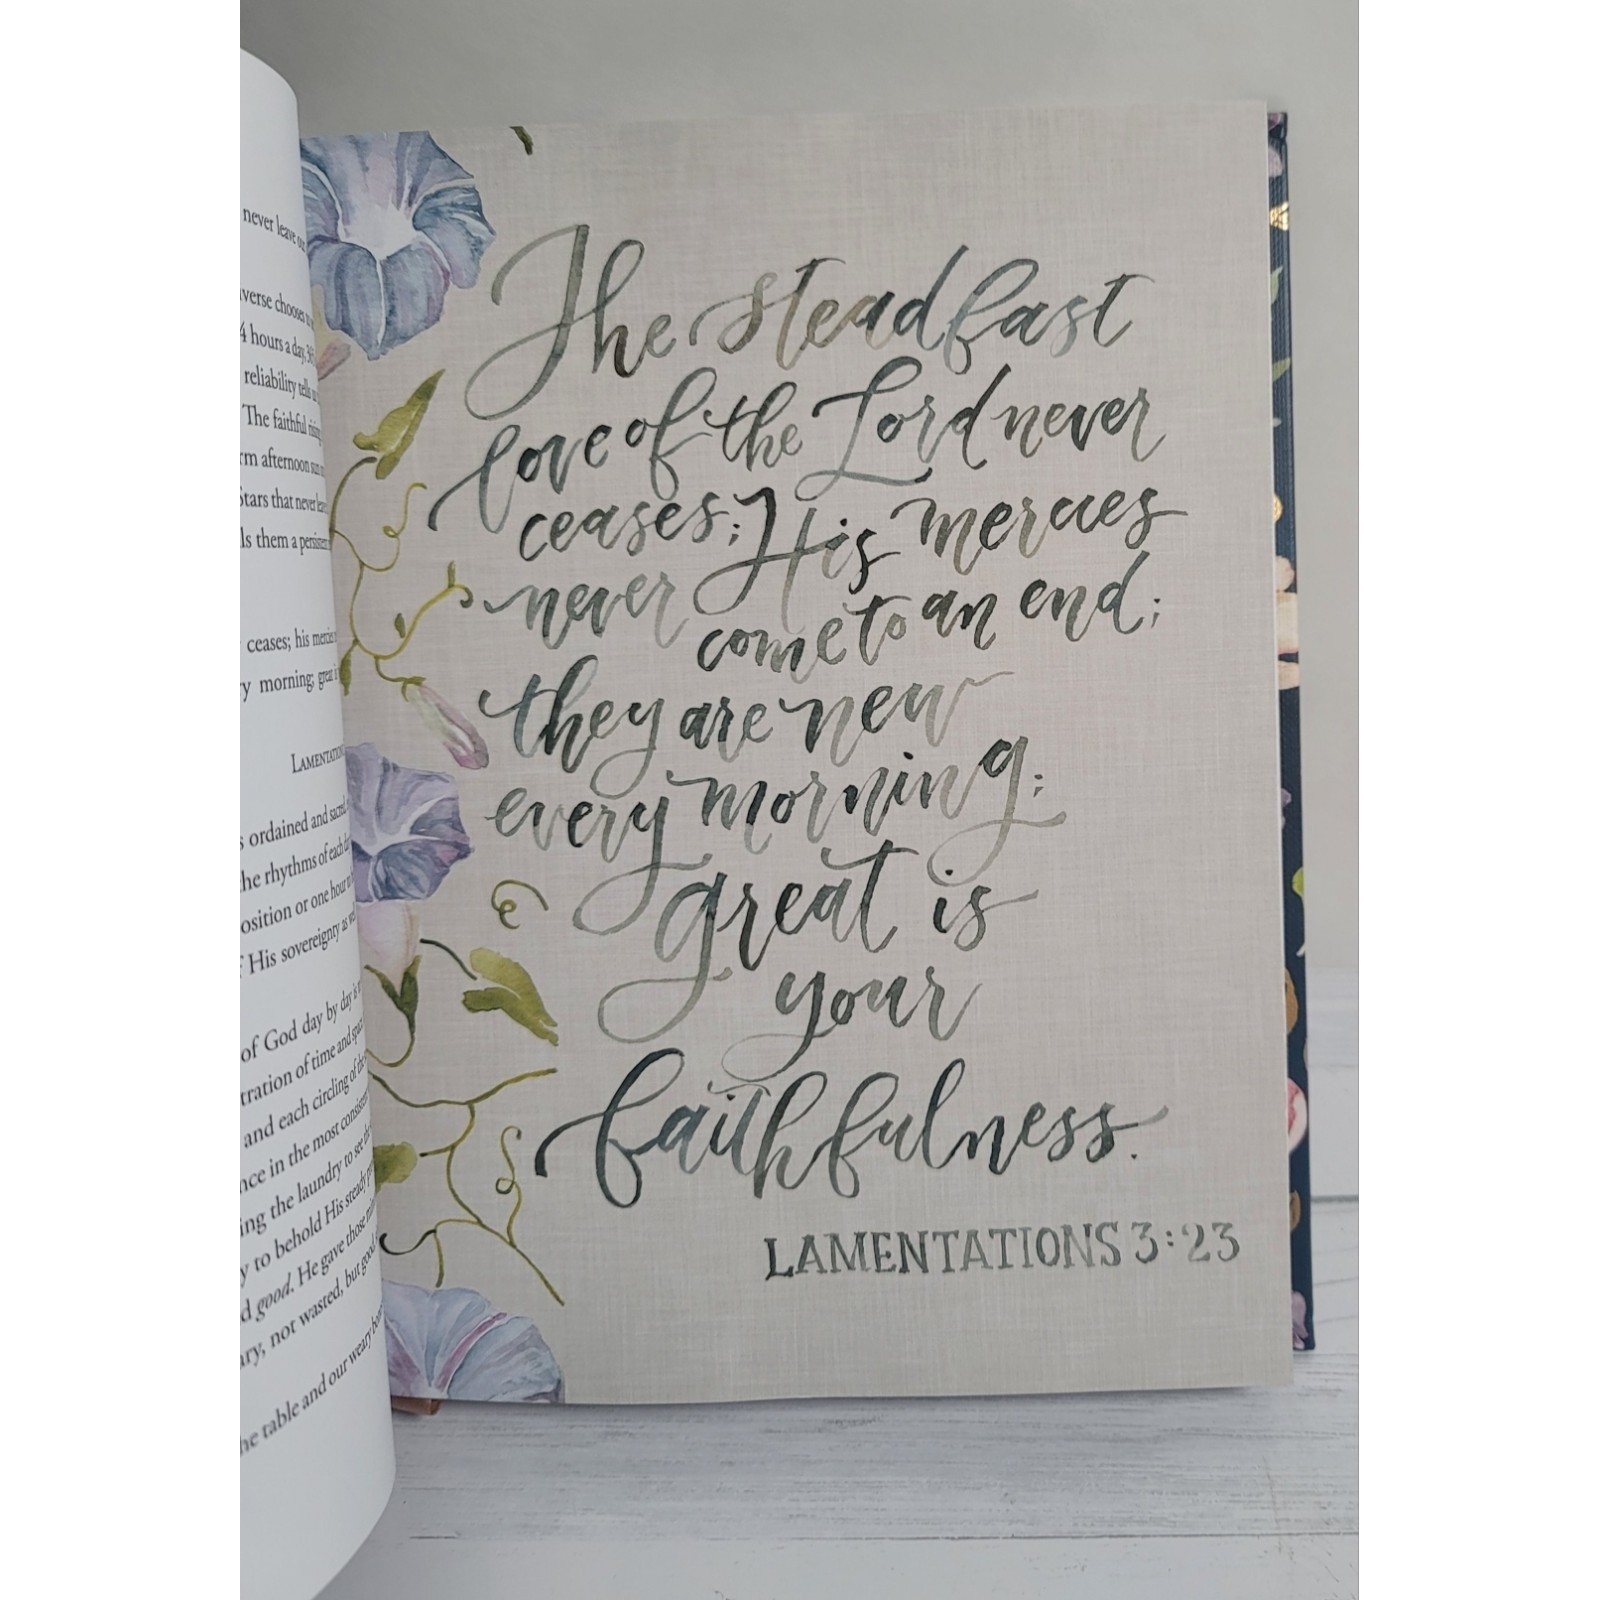 never leave
verse chooses
4 hours a day,
reliability tells
The faithful rising
afternoon sun
Stars that never
them a persistent
ceases; his mercies
morning; great
LAMENTATIONS
ordained and sacred
the rhythms of each
or one hour
His sovereignty as
of God day by day is
of time and space
and each circling of the
in the most consistent
the laundry to see the
to behold His steady
good. He gave those
not wasted, but good
table and our weary
The steadfast
love of the Lord never
ceases; His mercies
never come to an end;
they are new
every morning;
great is
your
faithfulness.
LAMENTATIONS 3:23